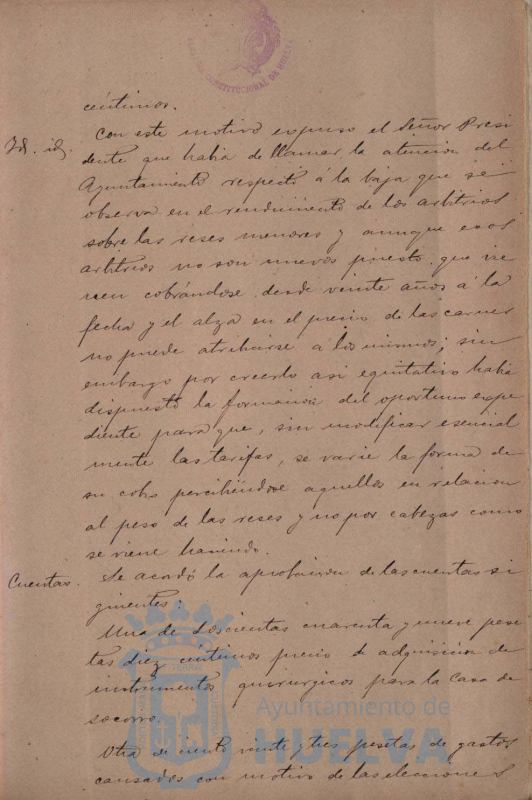 céntimos.
Id. id. Con este motivo expuso el Señor Presi
dente que habia de llamar la atencion del
Ayuntamiento respecto á la baja que se
observa en el rendimiento de los arbitrios
sobre las reses menores y aunque esos
arbitrios no son nuevos puesto que vie
nen cobrándose desde veinte años á la
fecha y el alza en el precio de las carnes
no puede atribuirse a los mismos; sin
embargo por creerlo asi equitativo habia
dispuesto la formacion del oportuno expe
diente para que, sin modificar esencial
mente las tarifas, se varie la forma de
su cobro percibiéndose aquellos en relacion
al peso de las reses y no por cabezas como
se viene haciendo.
Cuentas. Se acordó la aprobacion de las cuentas si
guientes:
Una de doscientas cuarenta y nueve pese
tas diez centimos precio de adquisicion de
instrumentos quirurgicos para la Casa de
socorro.
Otra de ciento veinte y tres pesetas de gastos
causados con motivo de las elecciones
CONSTITUCIONAL DE HUELVA
Ayuntamiento de
HUELVA